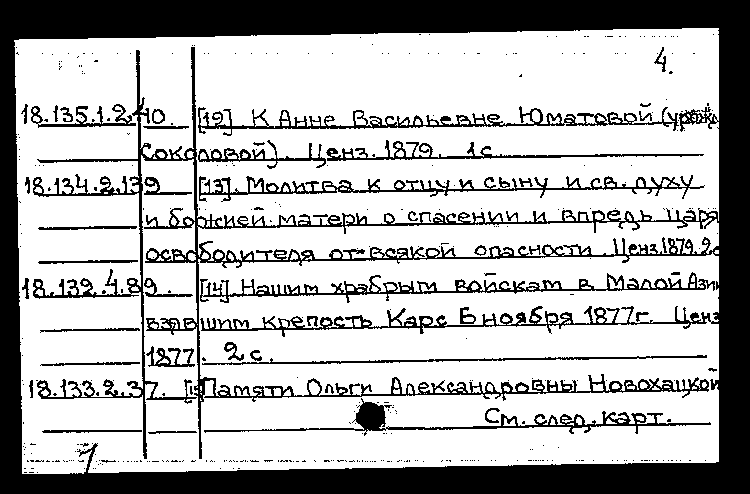 4.
18.135.1.2.40. [12] К Анне Васильевне Юматовой (урожд.
Соколовой). Ценз. 1879. 1с
18.134.2.139 [13]. Молитва к отцу и сыну и св. духу
и божией матери о спасении и впредь царя
освободителя от всякой опасности. Ценз. 1879. 2с
18.132.4.89. [14]. Нашим храбрым войскам в Малой Азии
взявшим крепость Карс 6 ноября 1877г. Ценз
1877. 2с.
18.133.2.37. [15] Памяти Ольги Александровны Новохацкой
См. след. карт.